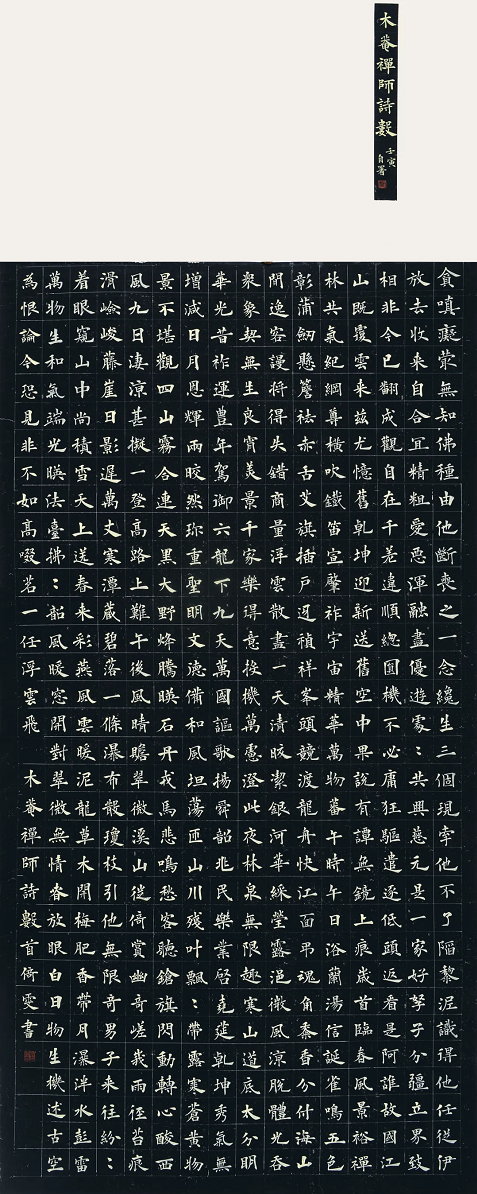 木菴禪師詩數
壬寅
自署
貪嗔癡縈無知佛種由他斷喪之一念纔生三個現宰他不了陷黎泥識得他任從伊
放去收來自合宜精粗愛惡渾融盡優遊處〻共興慈元是一家好拏子分疆立界豉
相非今已翻成觀自在千差違順總圓機不必庸狂驅遣逐低頭返看是阿誰故國江
山既覆雲來茲尤憶舊乾坤迎新送舊空中果說有譚無鏡上痕歲首臨春風景裕禪
林共氣紀綱尊橫吹鐵笛宣聲祚宇宙精華萬物蕃午時午日浴蘭湯信誕雀鳴五色
彰蒲劒懸簷祛赤舌艾旗插戶迓禎祥峯頭競渡龍舟快江面弔魂角黍香分付海山
閒逸客謾將得失錯商量浮雲散盡一天清皎潔銀河華綵瑩露浥微風涼脫體光吞
衆象契無生良宵美景千家樂得意投機萬慮澄此夜林泉無限趣寒山道底太分明
華光昔祚運豊年駕御六龍下九天萬國謳歌揚舜韶兆民樂業啓堯莚乾坤秀氣無
增減日月恩輝雨皎然珎重聖明文德備和風坦蕩匝山川殘叶飄〻帶露寒蒼黃物
景不堪觀四山霧合連天黑大野烽騰暎石丹戎馬悲鳴愁客聽鎗旗閃動轉心酸西
風九日淒涼甚擬一登高路上難午後風晴瞻翠微溪山從倚賞幽奇嵯峩雨徑苔痕
滑嶮峻藤崖日影遲萬丈寒潭藏碧落一條瀑布凝瓊枝引他無限奇男子來往紛〻
着眼窺山中尚積雪天上送春來彩燕風雲暖泥龍草木開梅肥香帶月瀑洋水彭雷
萬物生和氣端光暎法臺拂〻韶風暖窓開對翠微無情沓放眼白日物生機述古空
為恨論今恐見非不如高啜茗一任浮雲飛 木菴禪師詩數首倚雯書